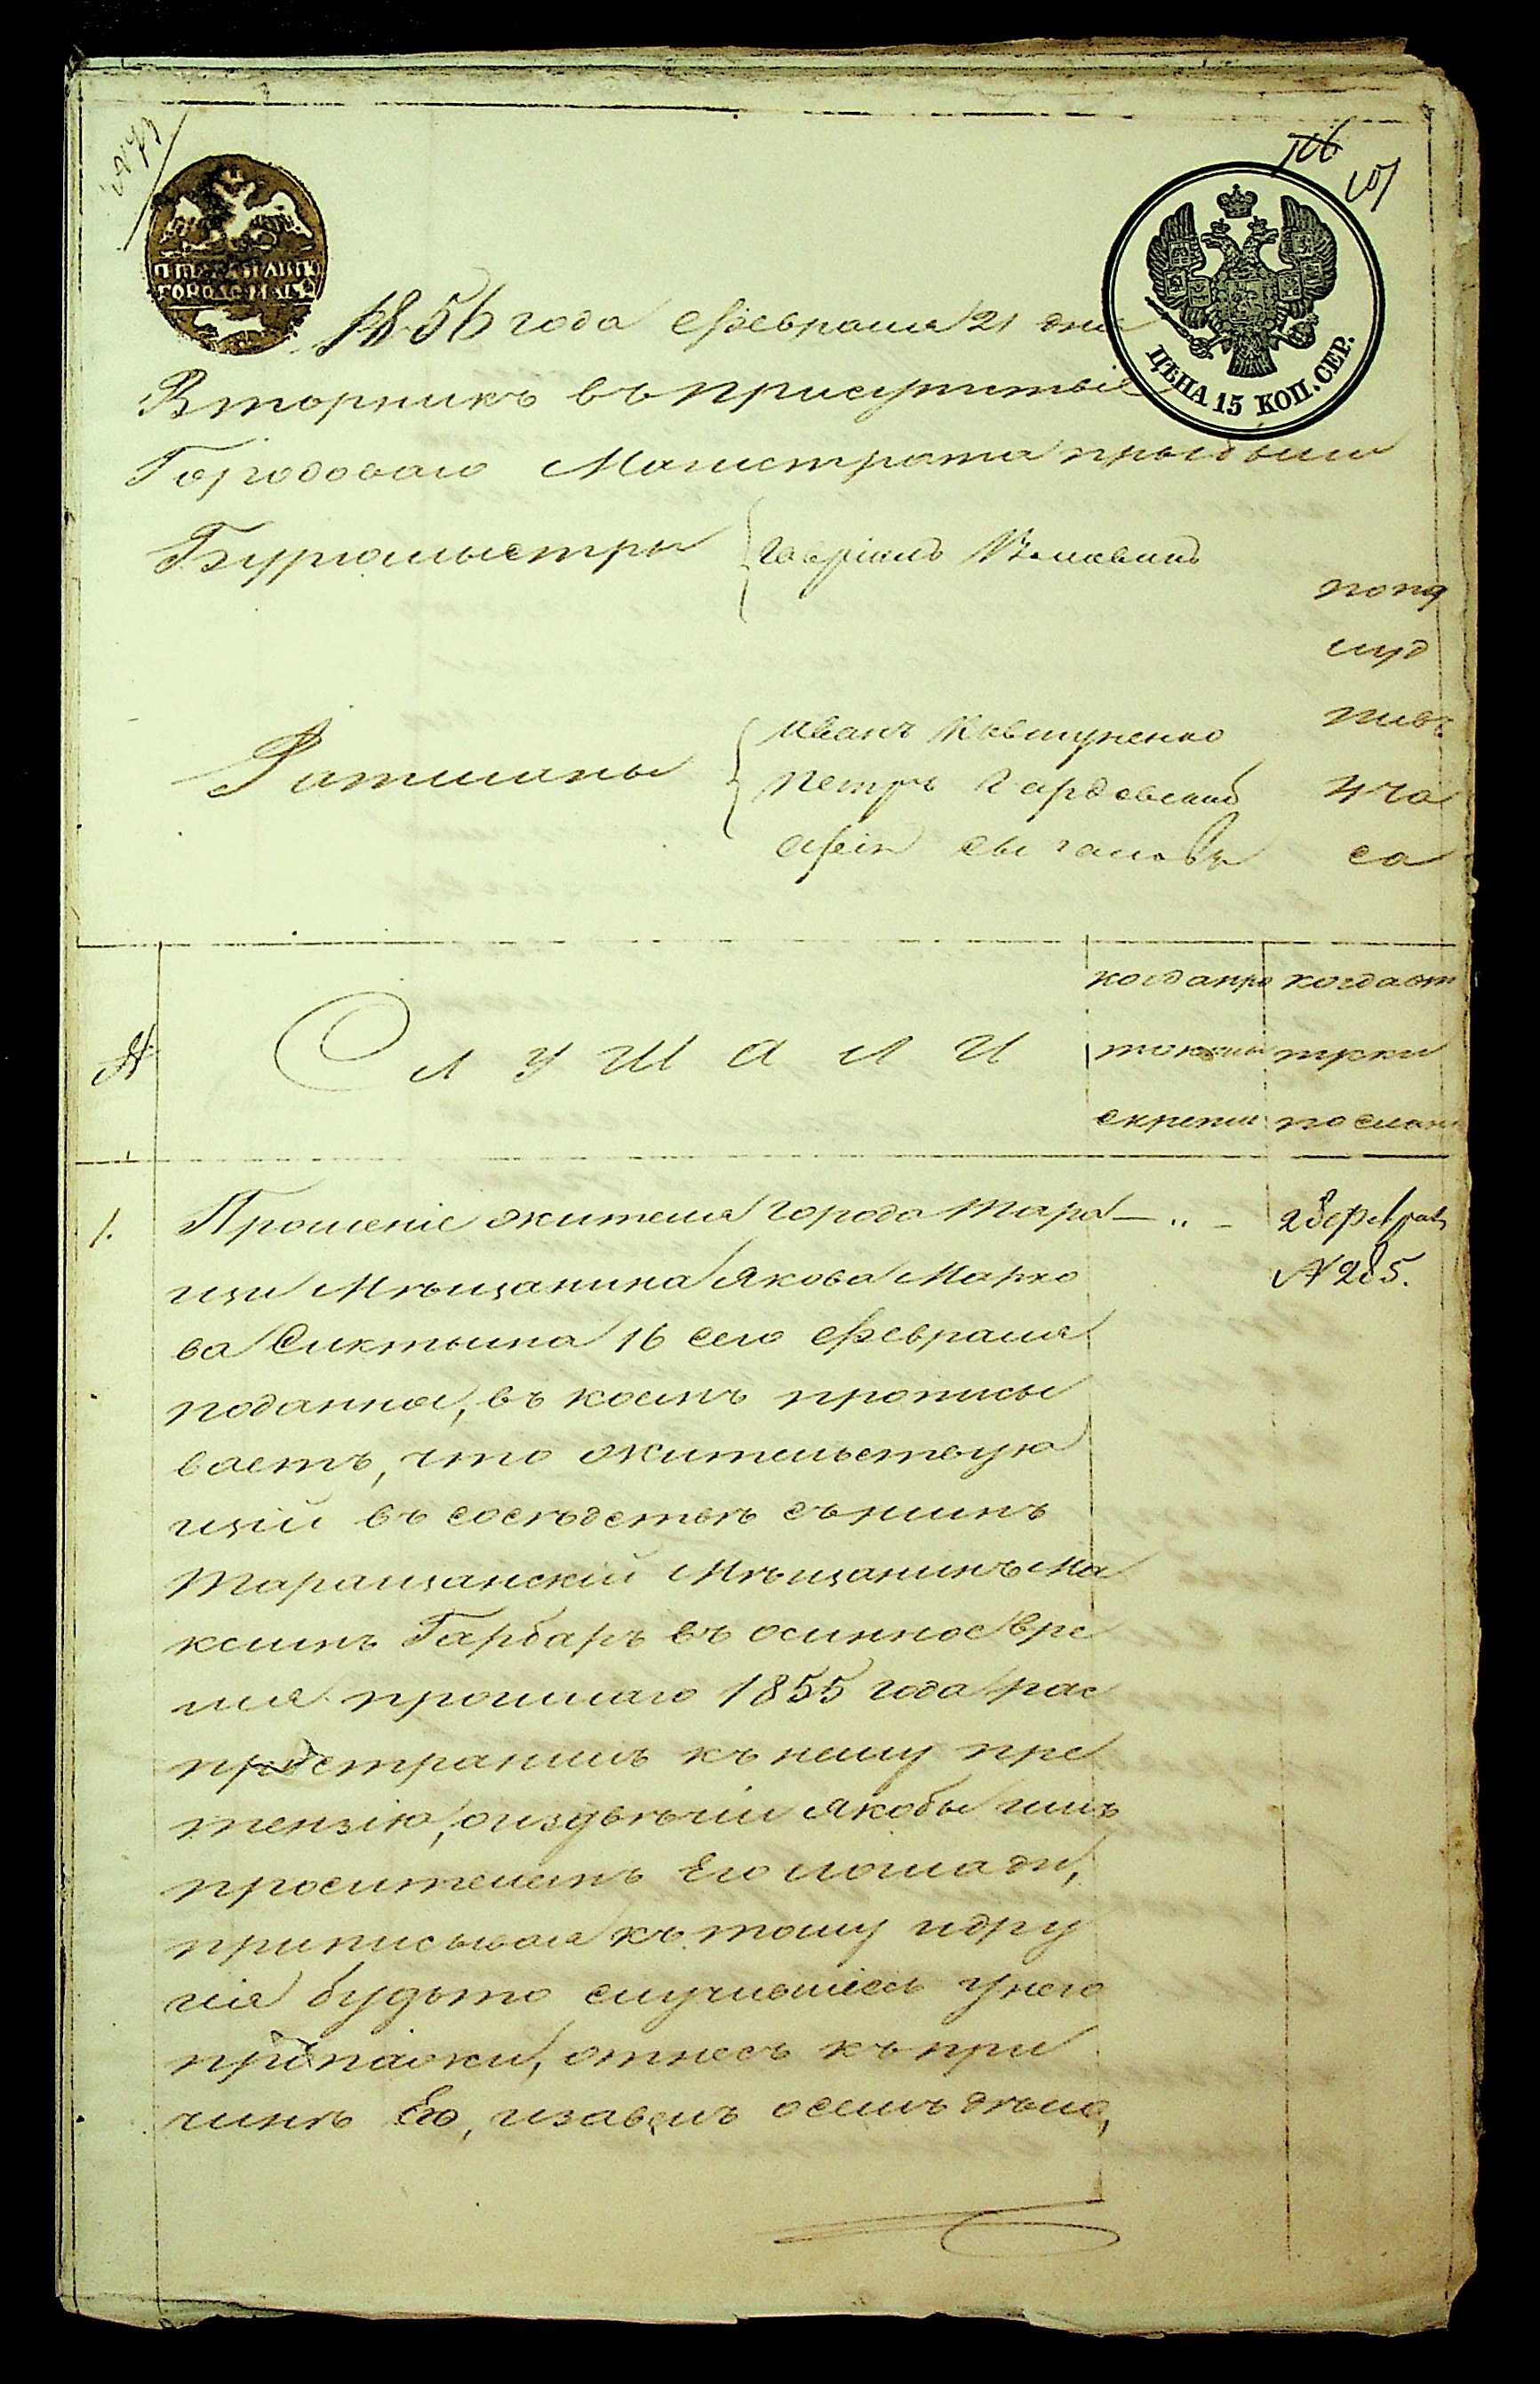 106
107
ГОРОДС МАГИ
ЦѢНА 15 КОП. СЕР.
1856 года Февраля 21 дня
Вторникъ въ присутствіе
Городоваго Магистрата прибыли
Бургомыстры
Гавріилъ
Ратманы
Иванъ Квѣтученко
Петръ Гардовскій
попо
луд
4 ча
са
№
Слушали
когда про
токолы
скрепл
когда от
трки
послан
1.
Прошеніе жителя города Тара
щи Мѣщанина Якова Марко
ва Сиктына 16 сего Февраля
поданное, въ коемъ прописы
ваетъ, что жительствую
щій въ сосѣдствѣ съ нимъ
Таращанскій Мѣщанинъ Ма
ксимъ Гарбаръ въ осинное вре
мя прошлаго 1855 года рас
пространилъ къ нему пре
тензію, о изувѣчіи якобы имъ
просителемъ Его лошади,
приписывая къ тому и дру
гія будьто случившіесь у него
пропажи, отнесъ къ при
чинѣ Его, и завелъ о семъ дѣло,
28 феврал
№ 285.